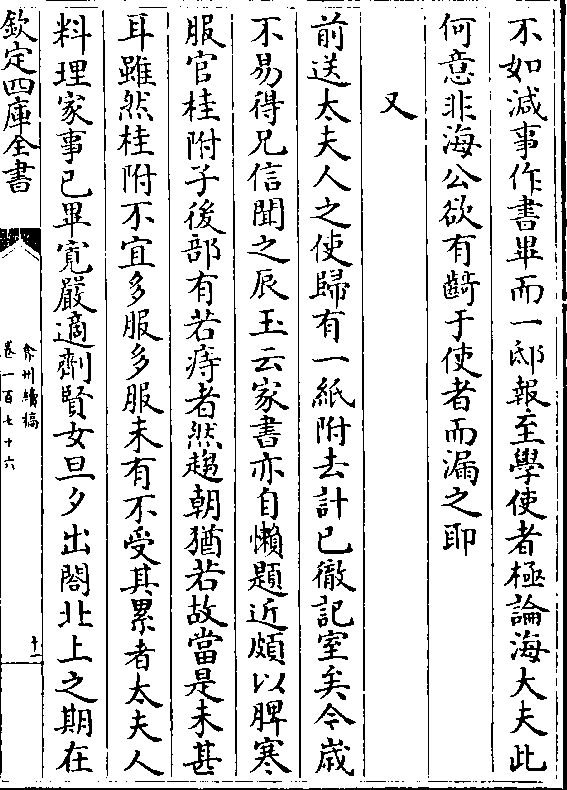 不如減事作書畢而一邸報至學使者極論海大夫此
何意非海公欲有齮于使者而漏之耶
又
前送太夫人之使歸有一紙附去計已徹記室矣今歳
不易得兄信聞之辰玉云家書亦自懶題近頗以脾寒
服官桂附子後部有若痔者然趨朝猶若故當是未甚
耳雖然桂附不宜多服多服未有不受其累者太夫人
料理家事已畢寛嚴適劑賢女旦夕出閤北上之期在
欽定四庫全書
弇州續稿
卷一百七十六
十一